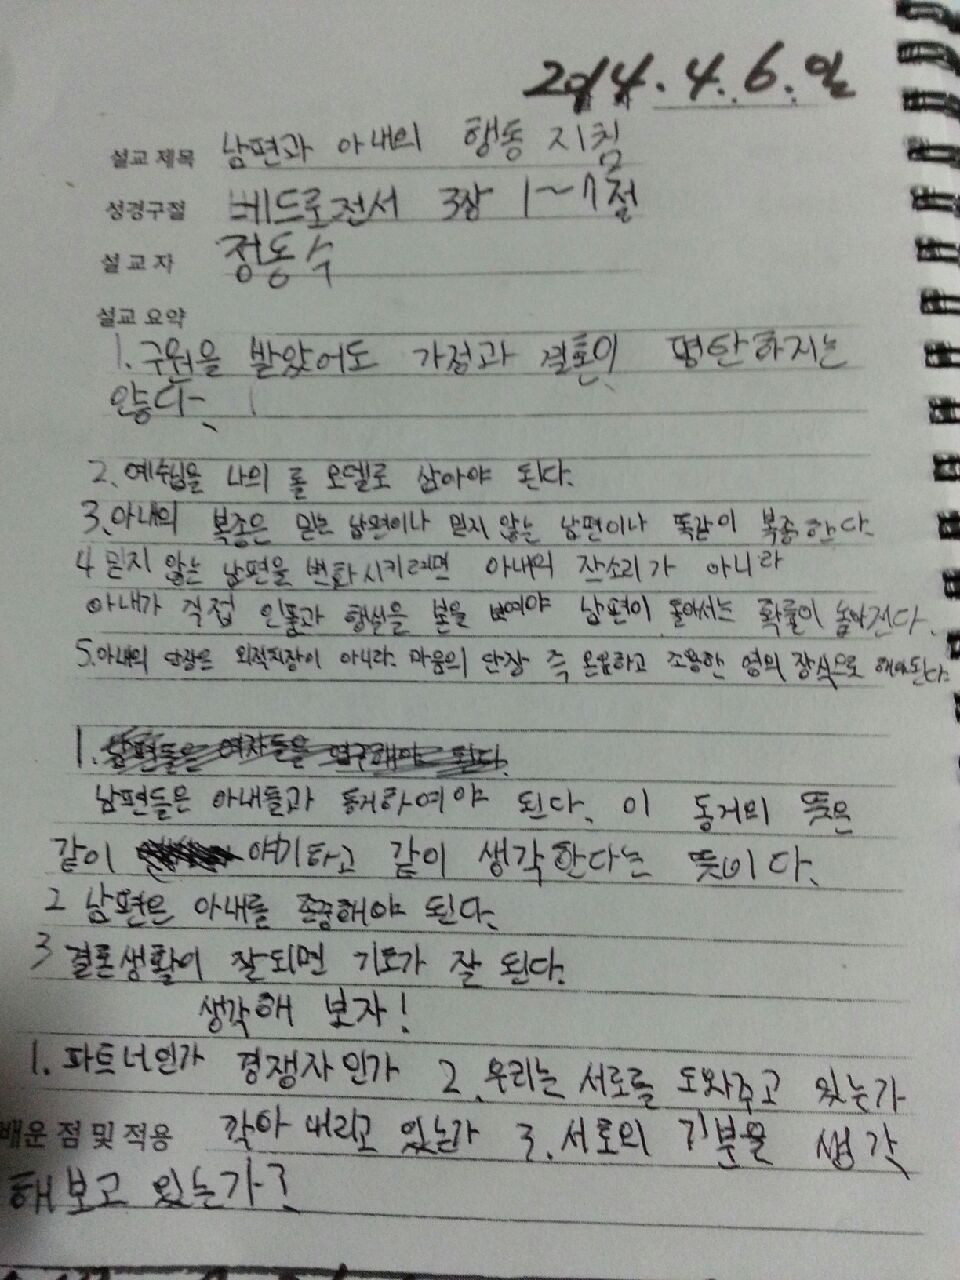 2014. 4. 6. 일
설교 제목 남편과 아내의 행동 지침
성경구절 베드로전서 3장 1~7절
설교자 정동수
설교 요약
1. 구원을 받았어도 가정과 결혼이 평탄하지는
않다.
2. 예수님을 나의 롤 모델로 삼아야 된다.
3. 아내의 복종은 믿는 남편이나 믿지 않는 남편이나 똑같이 복종한다.
4 믿지 않는 남편을 변화시키려면 아내의 잔소리가 아니라
아내가 직접 인품과 행실을 본을 보여야 남편이 돌아서는 확률이 높아진다.
5. 아내의 단장은 외적치장이 아니라 마음의 단장 즉 온유하고 조용한 영의 장식으로 해야된다.
1. 남편들은 여자들을 연구해야 된다.
남편들은 아내들과 동거하여야 된다. 이 동거의 뜻은
같이 얘기하고 같이 생각한다는 뜻이다.
2 남편은 아내를 존중해야 된다.
3 결혼생활이 잘되면 기도가 잘 된다.
생각해 보자!
1. 파트너인가 경쟁자인가 2. 우리는 서로를 도와주고 있는가
배운 점 및 적용 깍아 내리고 있는가 3. 서로의 기분을 생각
해보고 있는가?